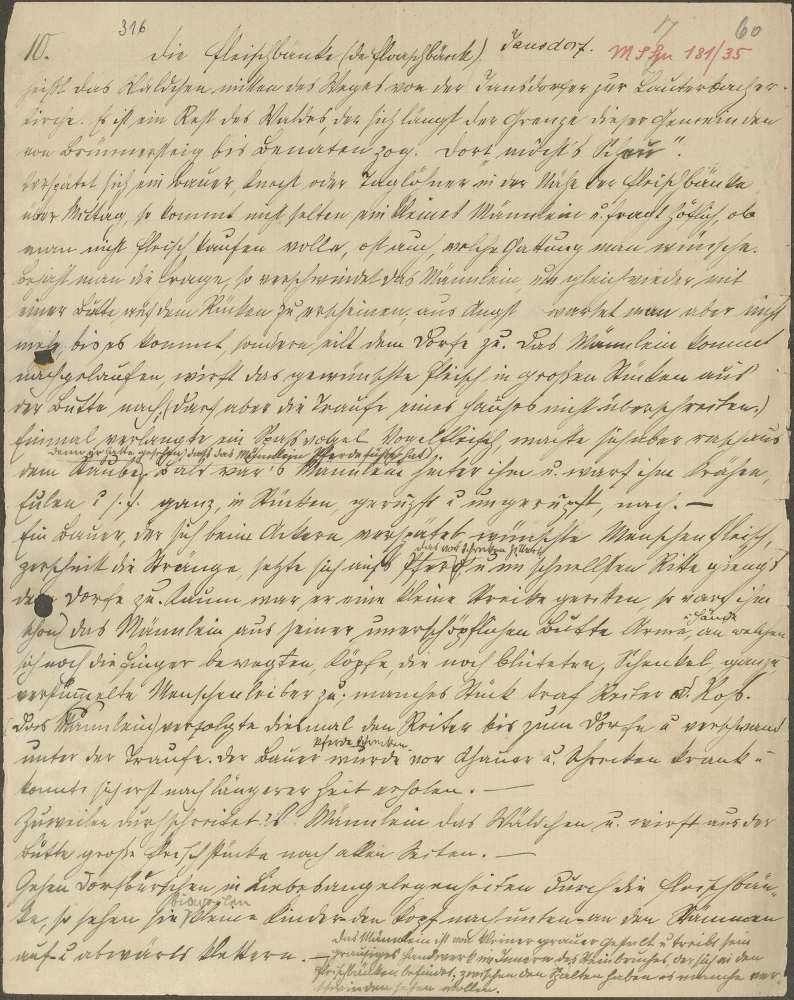 316
17 60
10. Die Fleischbänke (de Flaeschbänk) Jansdorf. M S Zn 181/35
heißt das Wäldchen mitten des Weges von der Jansdorfer zur Lauterbacher-
kirche. Es ist ein Rest des Waldes der sich längst der Grenze dieser Gemeinden
von Brünnersteig bis Benaten zog. Dort macht's Scheu".
Verspätet sich ein Bauer, Knecht oder Taglöhner in der Nähe der Fleischbänke
über Mittag, so kommt nicht selten ein kleines Männlein u. fragt höflich, ob
man nicht Fleisch kaufen wolle, oft auch, welche Gattung man wünsche.
Bejaht man die Frage, so verschwindet das Männlein, um gleich wieder mit
einer Butte auf dem Rücken zu erscheinen, aus Angst wartet man aber nicht
mehr, bis es kommt, sondern eilt dem Dorfe zu. Das Männlein kommt
nachgelaufen, wirft das gewünschte Fleisch in großen Stücken aus
der Butte nach, (darf aber die Traufe eines Hauses nicht überschreiten.)
Einmal verlangte ein Spaßvogel Vogelfleisch machte sich aber rasch aus
denn er hatte gesehen, daß das Männlein Pferdefüße hat
dem Staube, bald war's Männlein hinter ihm u. warf ihm Krähen,
Eulen u. s. f. ganz, in Stücken, gerupft u ungerupft, nach. —
Ein Bauer, der sich beim Ackern verspätet wünschte Menschenfleisch,
das vor Schrecken zitterte
zerschnitt die Stränge, setzte sich aufs Pferd u im schnellsten Ritte gieng's
dem Dorfe zu. Kaum war er eine kleine Strecke geritten, so warf ihm
u Hände
schon das Männlein aus seiner unerschöpflichen Butte Arme, an welchen
sich noch die Finger bewegten, Köpfe, die noch bluteten, Schenkel, ganze
verstümmelte Menschenleiber zu. manches Stück traf Reiter u. Roß.
Das Männlein verfolgte diesmal den Reiter bis zum Dorfe u verschwand
unter der Traufe. Der Bauer wurde vor Schauer u. Schrecken krank u
konnte sich erst nach längerer Zeit erholen. —
Zuweilen durchschreitet's Männlein das Wäldchen u. wirft aus der
Butte große Fleischstücke nach allen Seiten. —
Gehen Dorfburschen in Liebesangelegenheiten durch die Fleischbän-
bisweilen
ke, so sehen sie kleine Kinder den Kopf nach unten an den Stämmen
auf- u abwärts klettern. — das Männlein ist von kleiner grauer Gestalt u treibt sein
grausiges Handwerk im Innern des Steinbruches der sich in den
Fleischbänken befindet, zwischen den Spalten haben es manche ver-
schwinden sehen wollen.